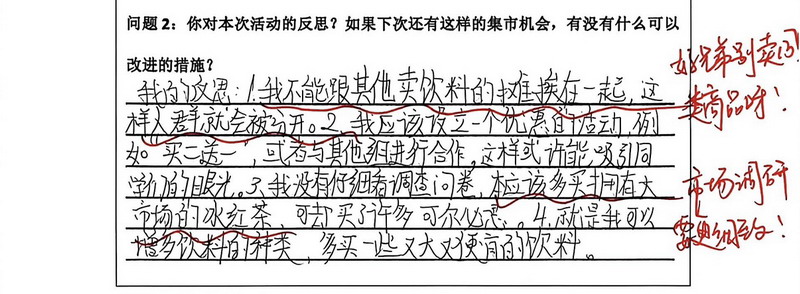 问题 2：你对本次活动的反思？如果下次还有这样的集市机会，有没有什么可以
改进的措施？
我的反思：1.我不能跟其他卖饮料的摊挨在一起，这
样人群就会被分开。2.我应该设立一个优惠的活动，例
如“买二送一”，或者与其他组进行合作。这样或许能吸引同
学们的目光。3.我没有仔细看调查问卷，本应该多买拥有大
市场的冰红茶，可却买了许多可尔必思。4.就是我可以
增多饮料的种类，多买一些又大又便宜的饮料。
好兄弟别卖同
类商品呀！
市场调研
要更细致！